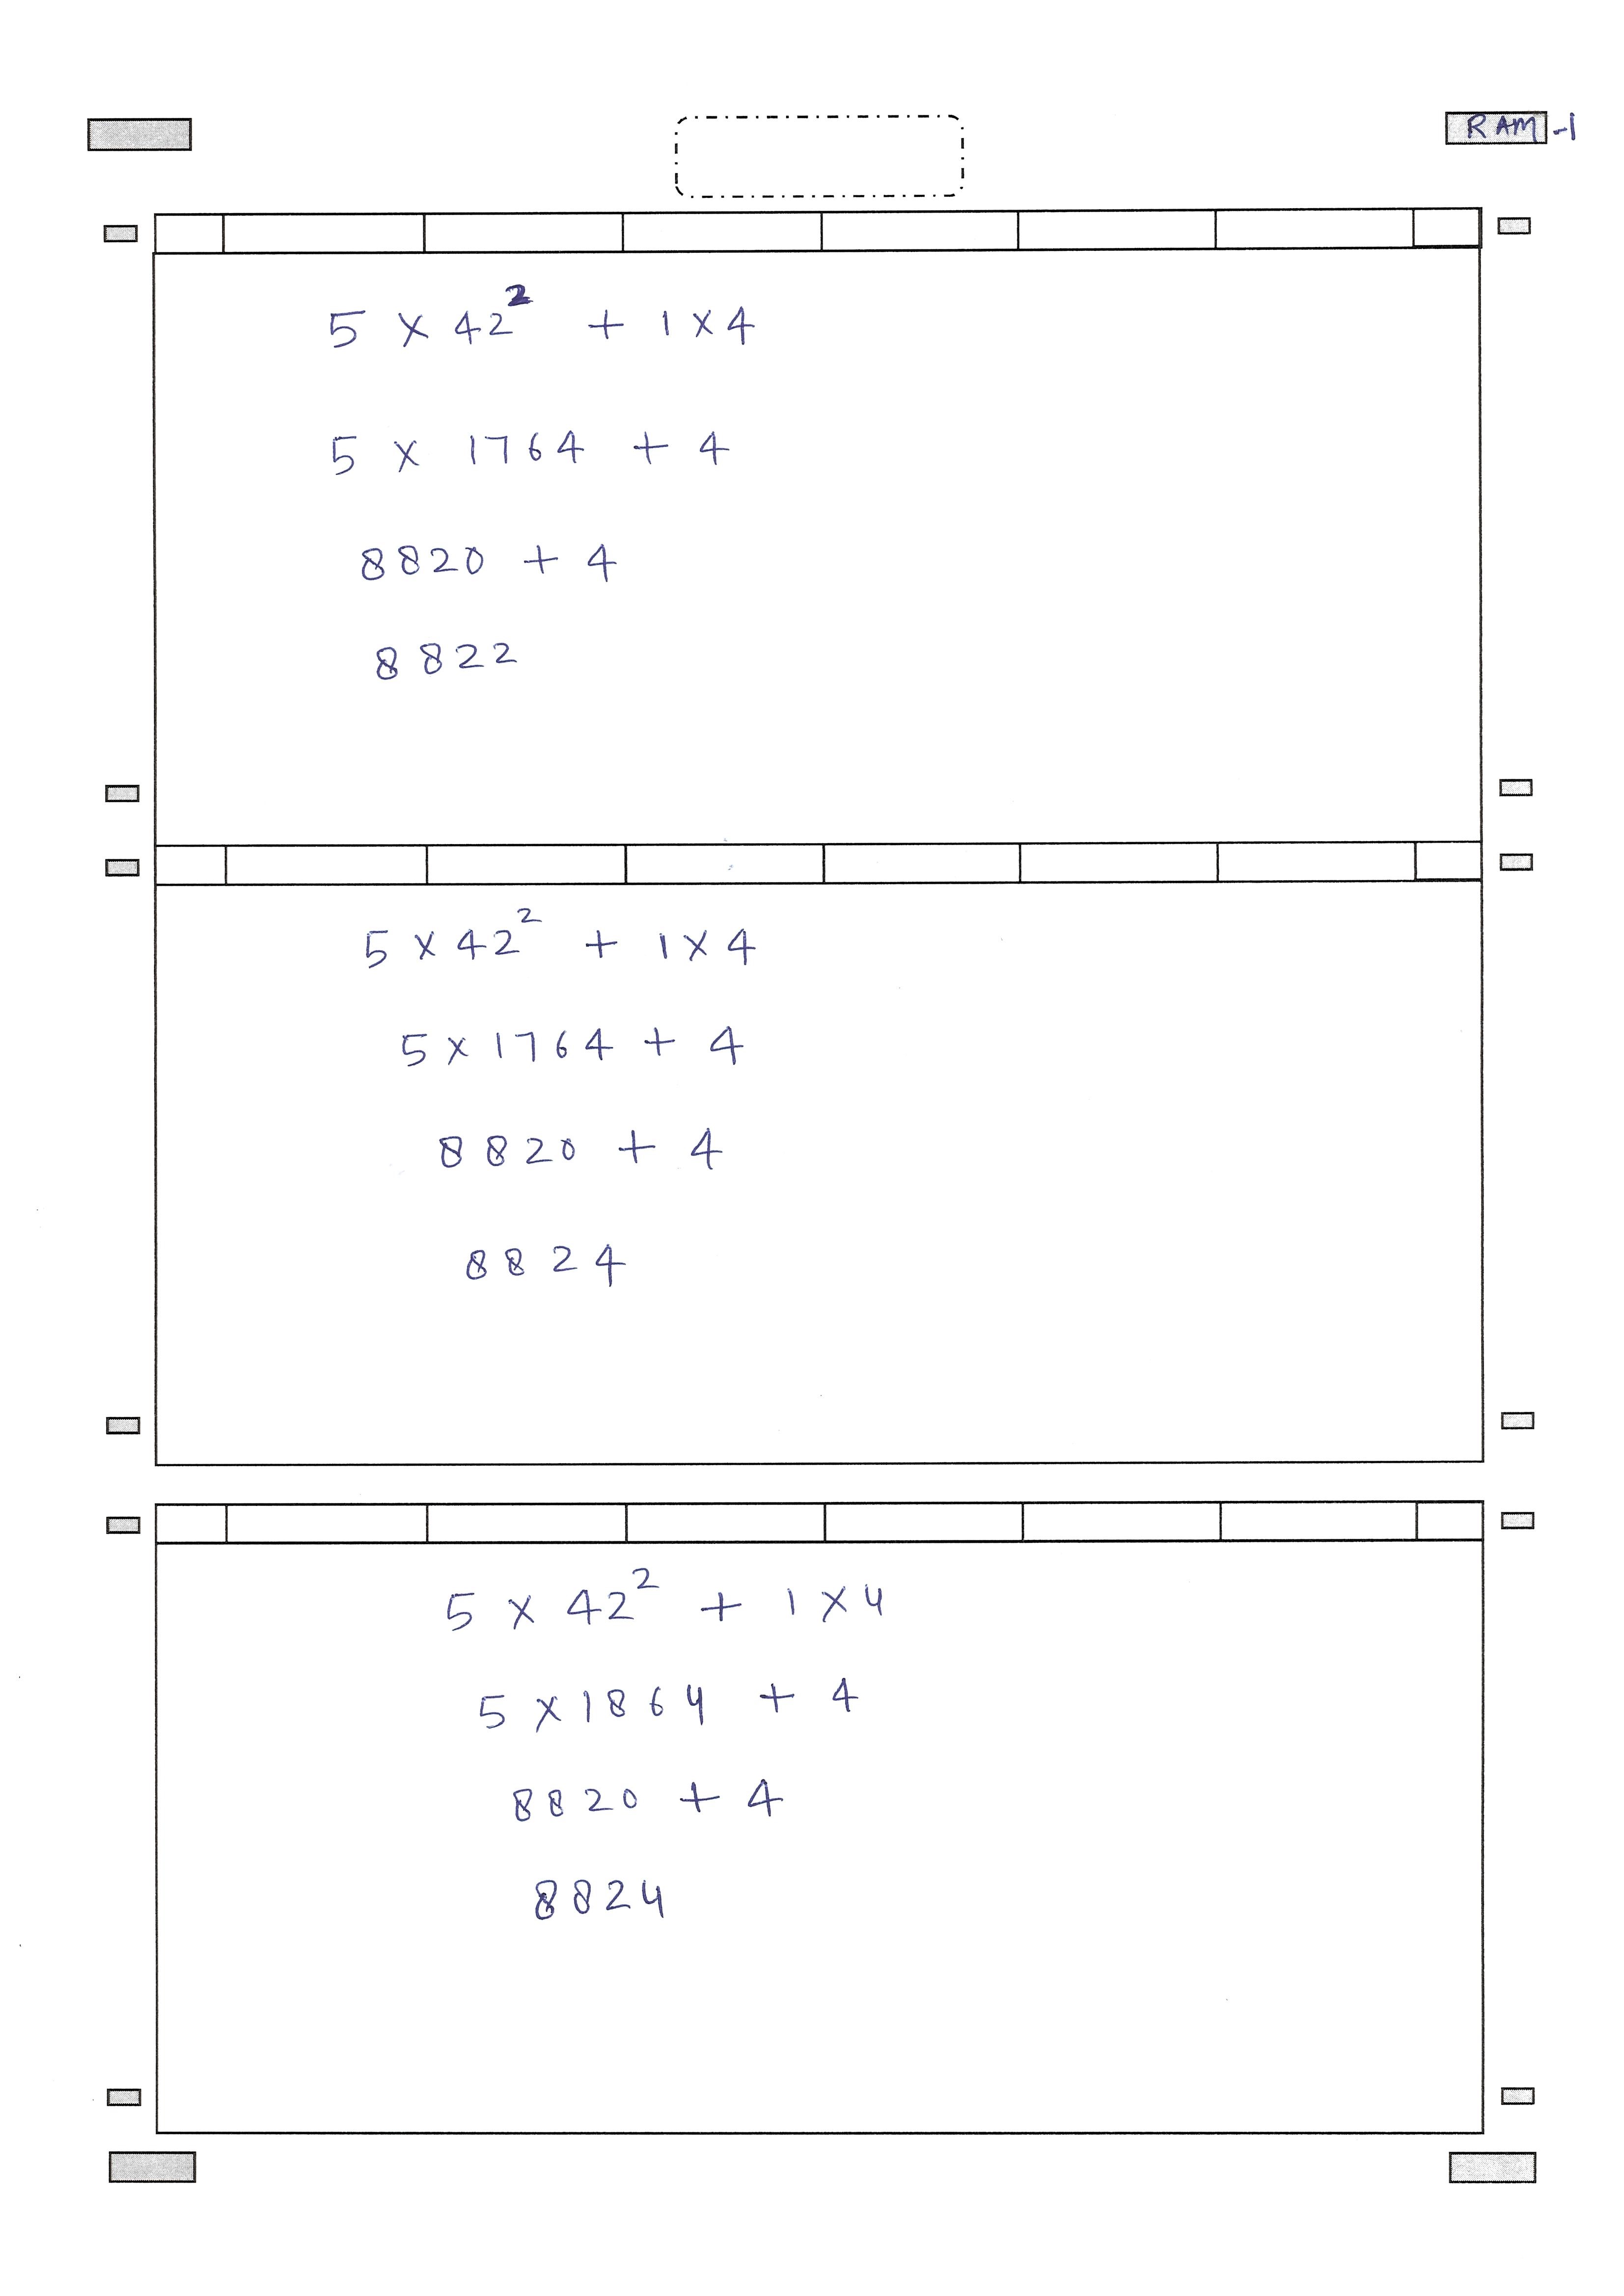 RAM-1
5 × 42² + 1 × 4
5 × 1764 + 4
8820 + 4
8822
5 × 42² + 1 × 4
5 × 1764 + 4
8820 + 4
8824
5 × 42² + 1 × 4
5 × 1864 + 4
8820 + 4
8824